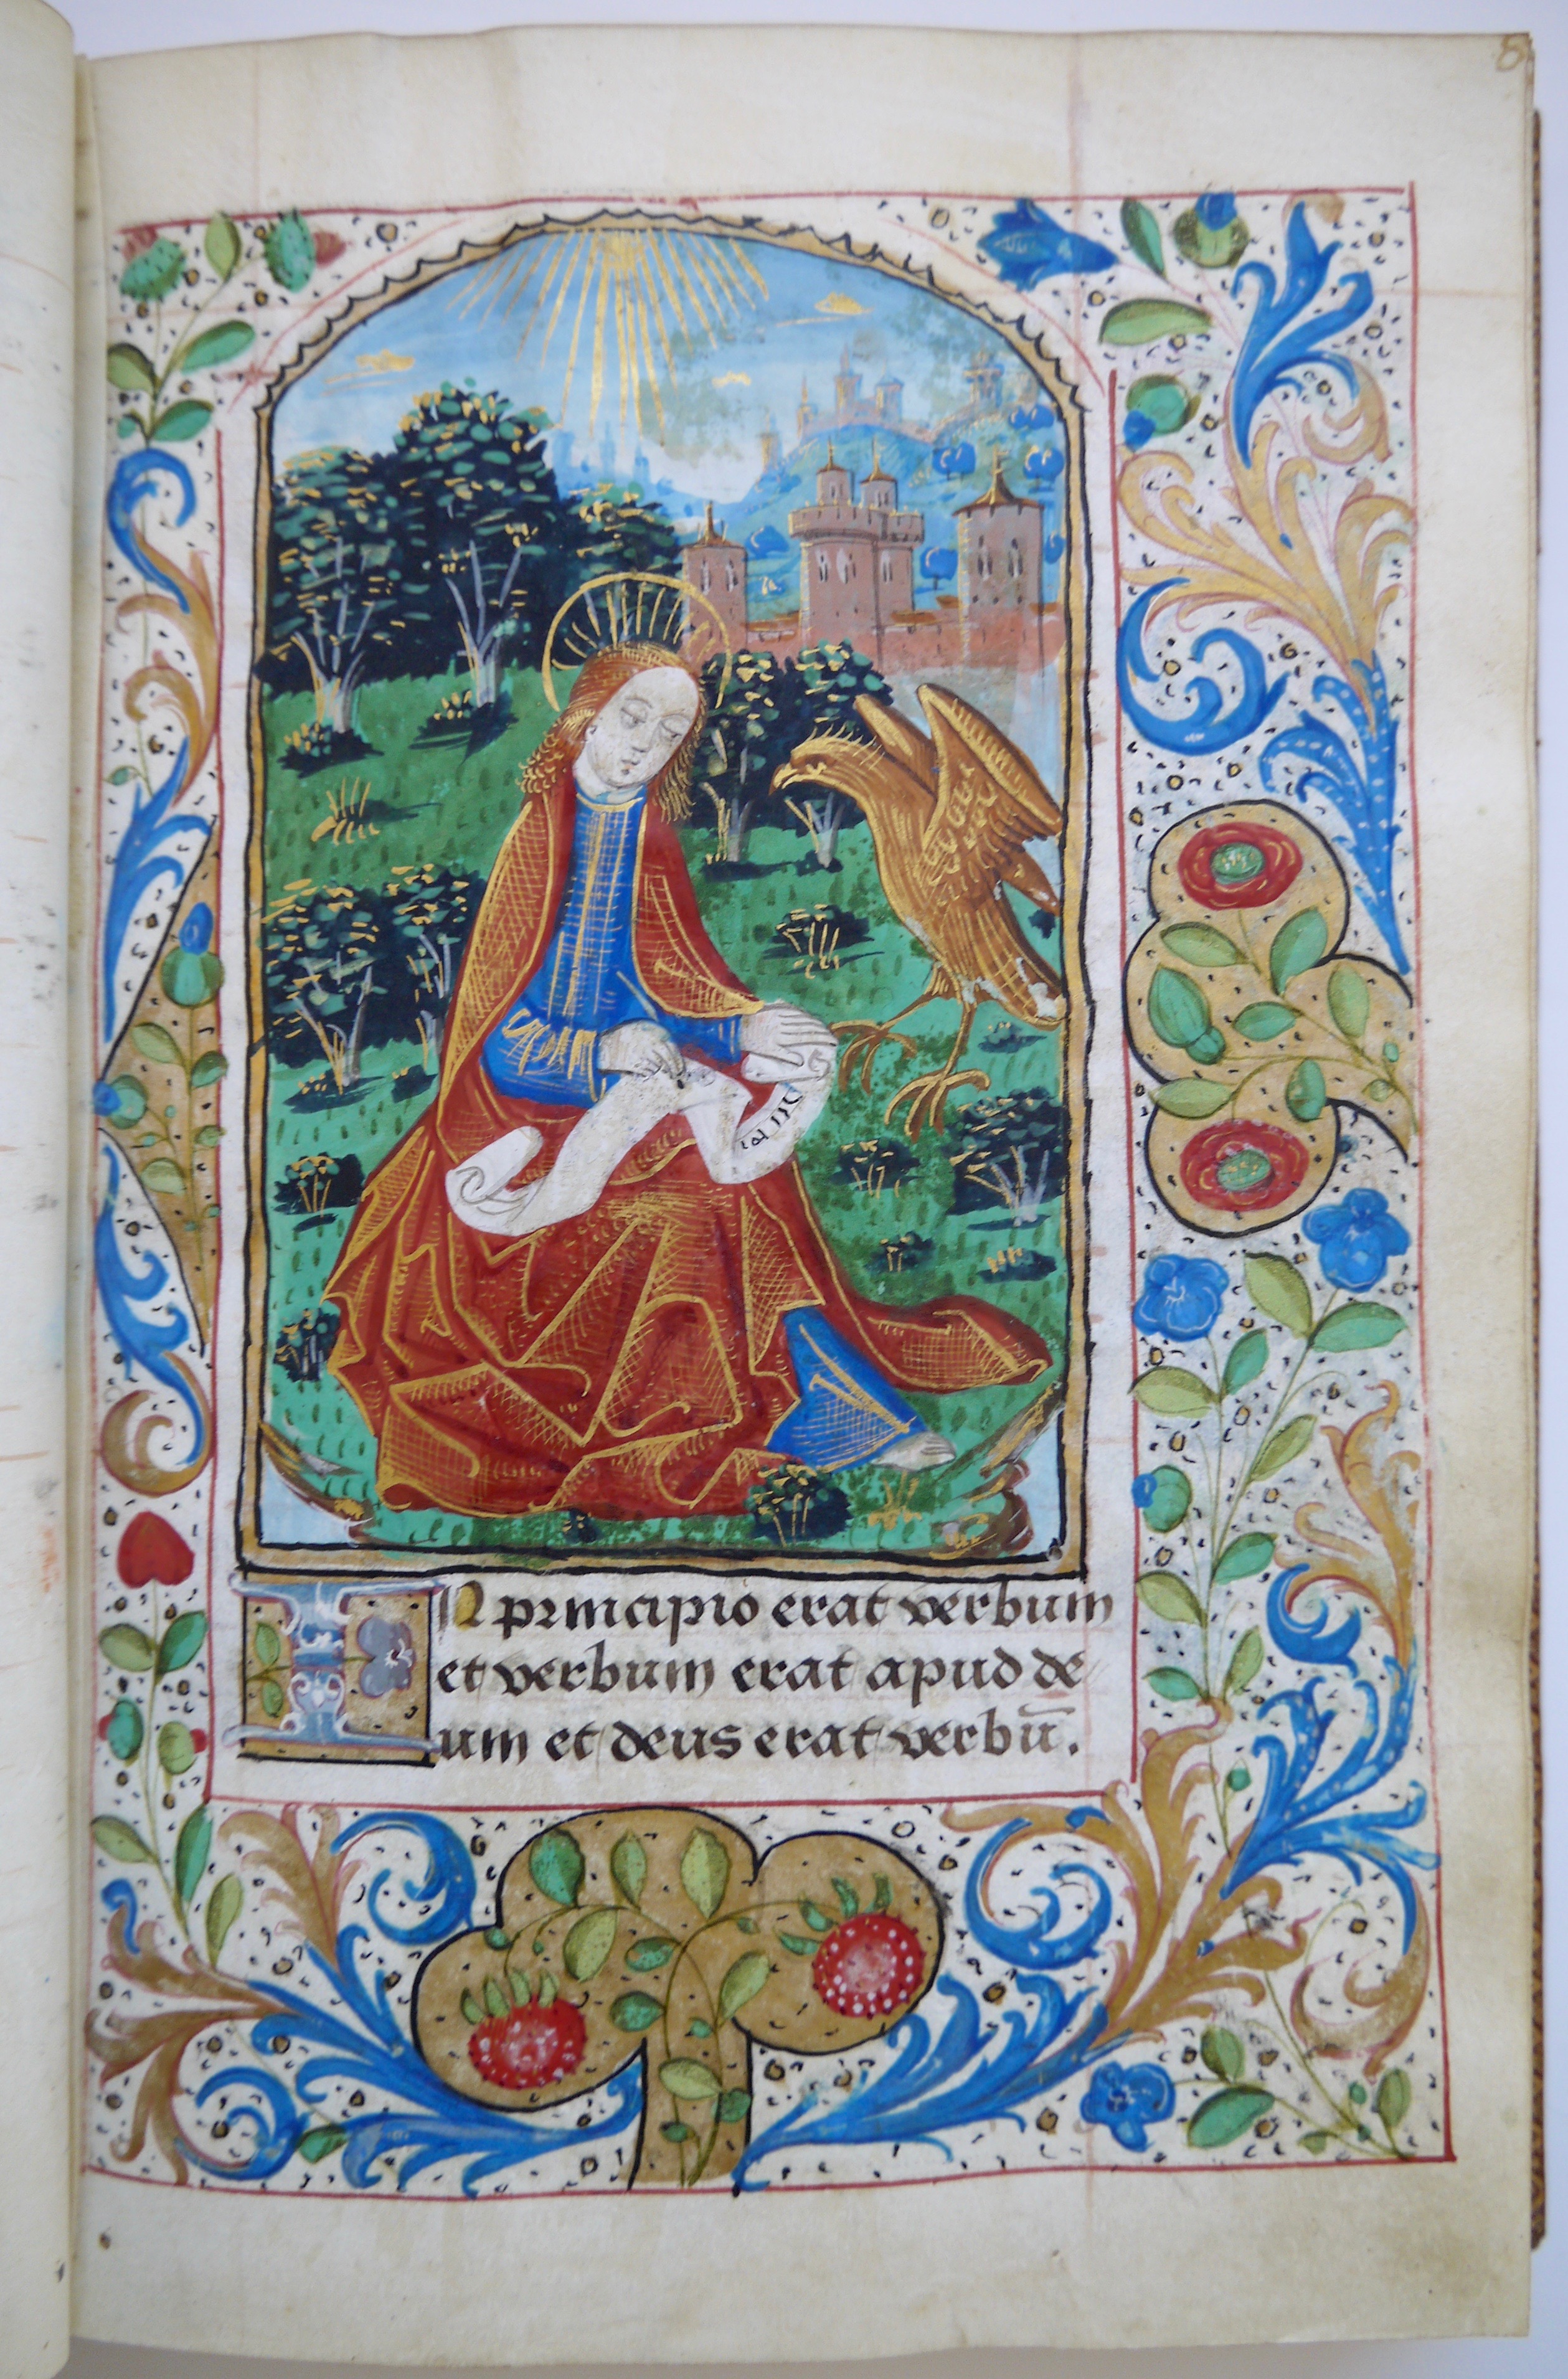 8
IN principio erat verbum
et verbum erat apud de
um et deus erat verbū.